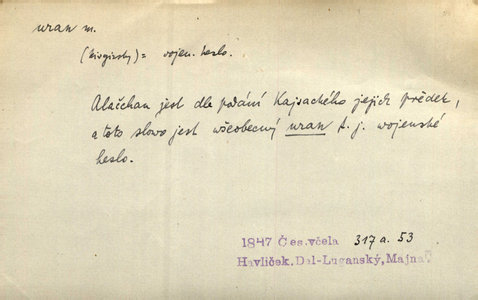 uran m.
(kirgizsky) = vojen. heslo.
Alačchan jest dle podání Kajsackého jejich předek,
a toto slowo jest wšeobecný uran t. j. wojenské
heslo.
1847 Čes.včela 317 a. 53
Havlíček, Dal-Luganský, Majna